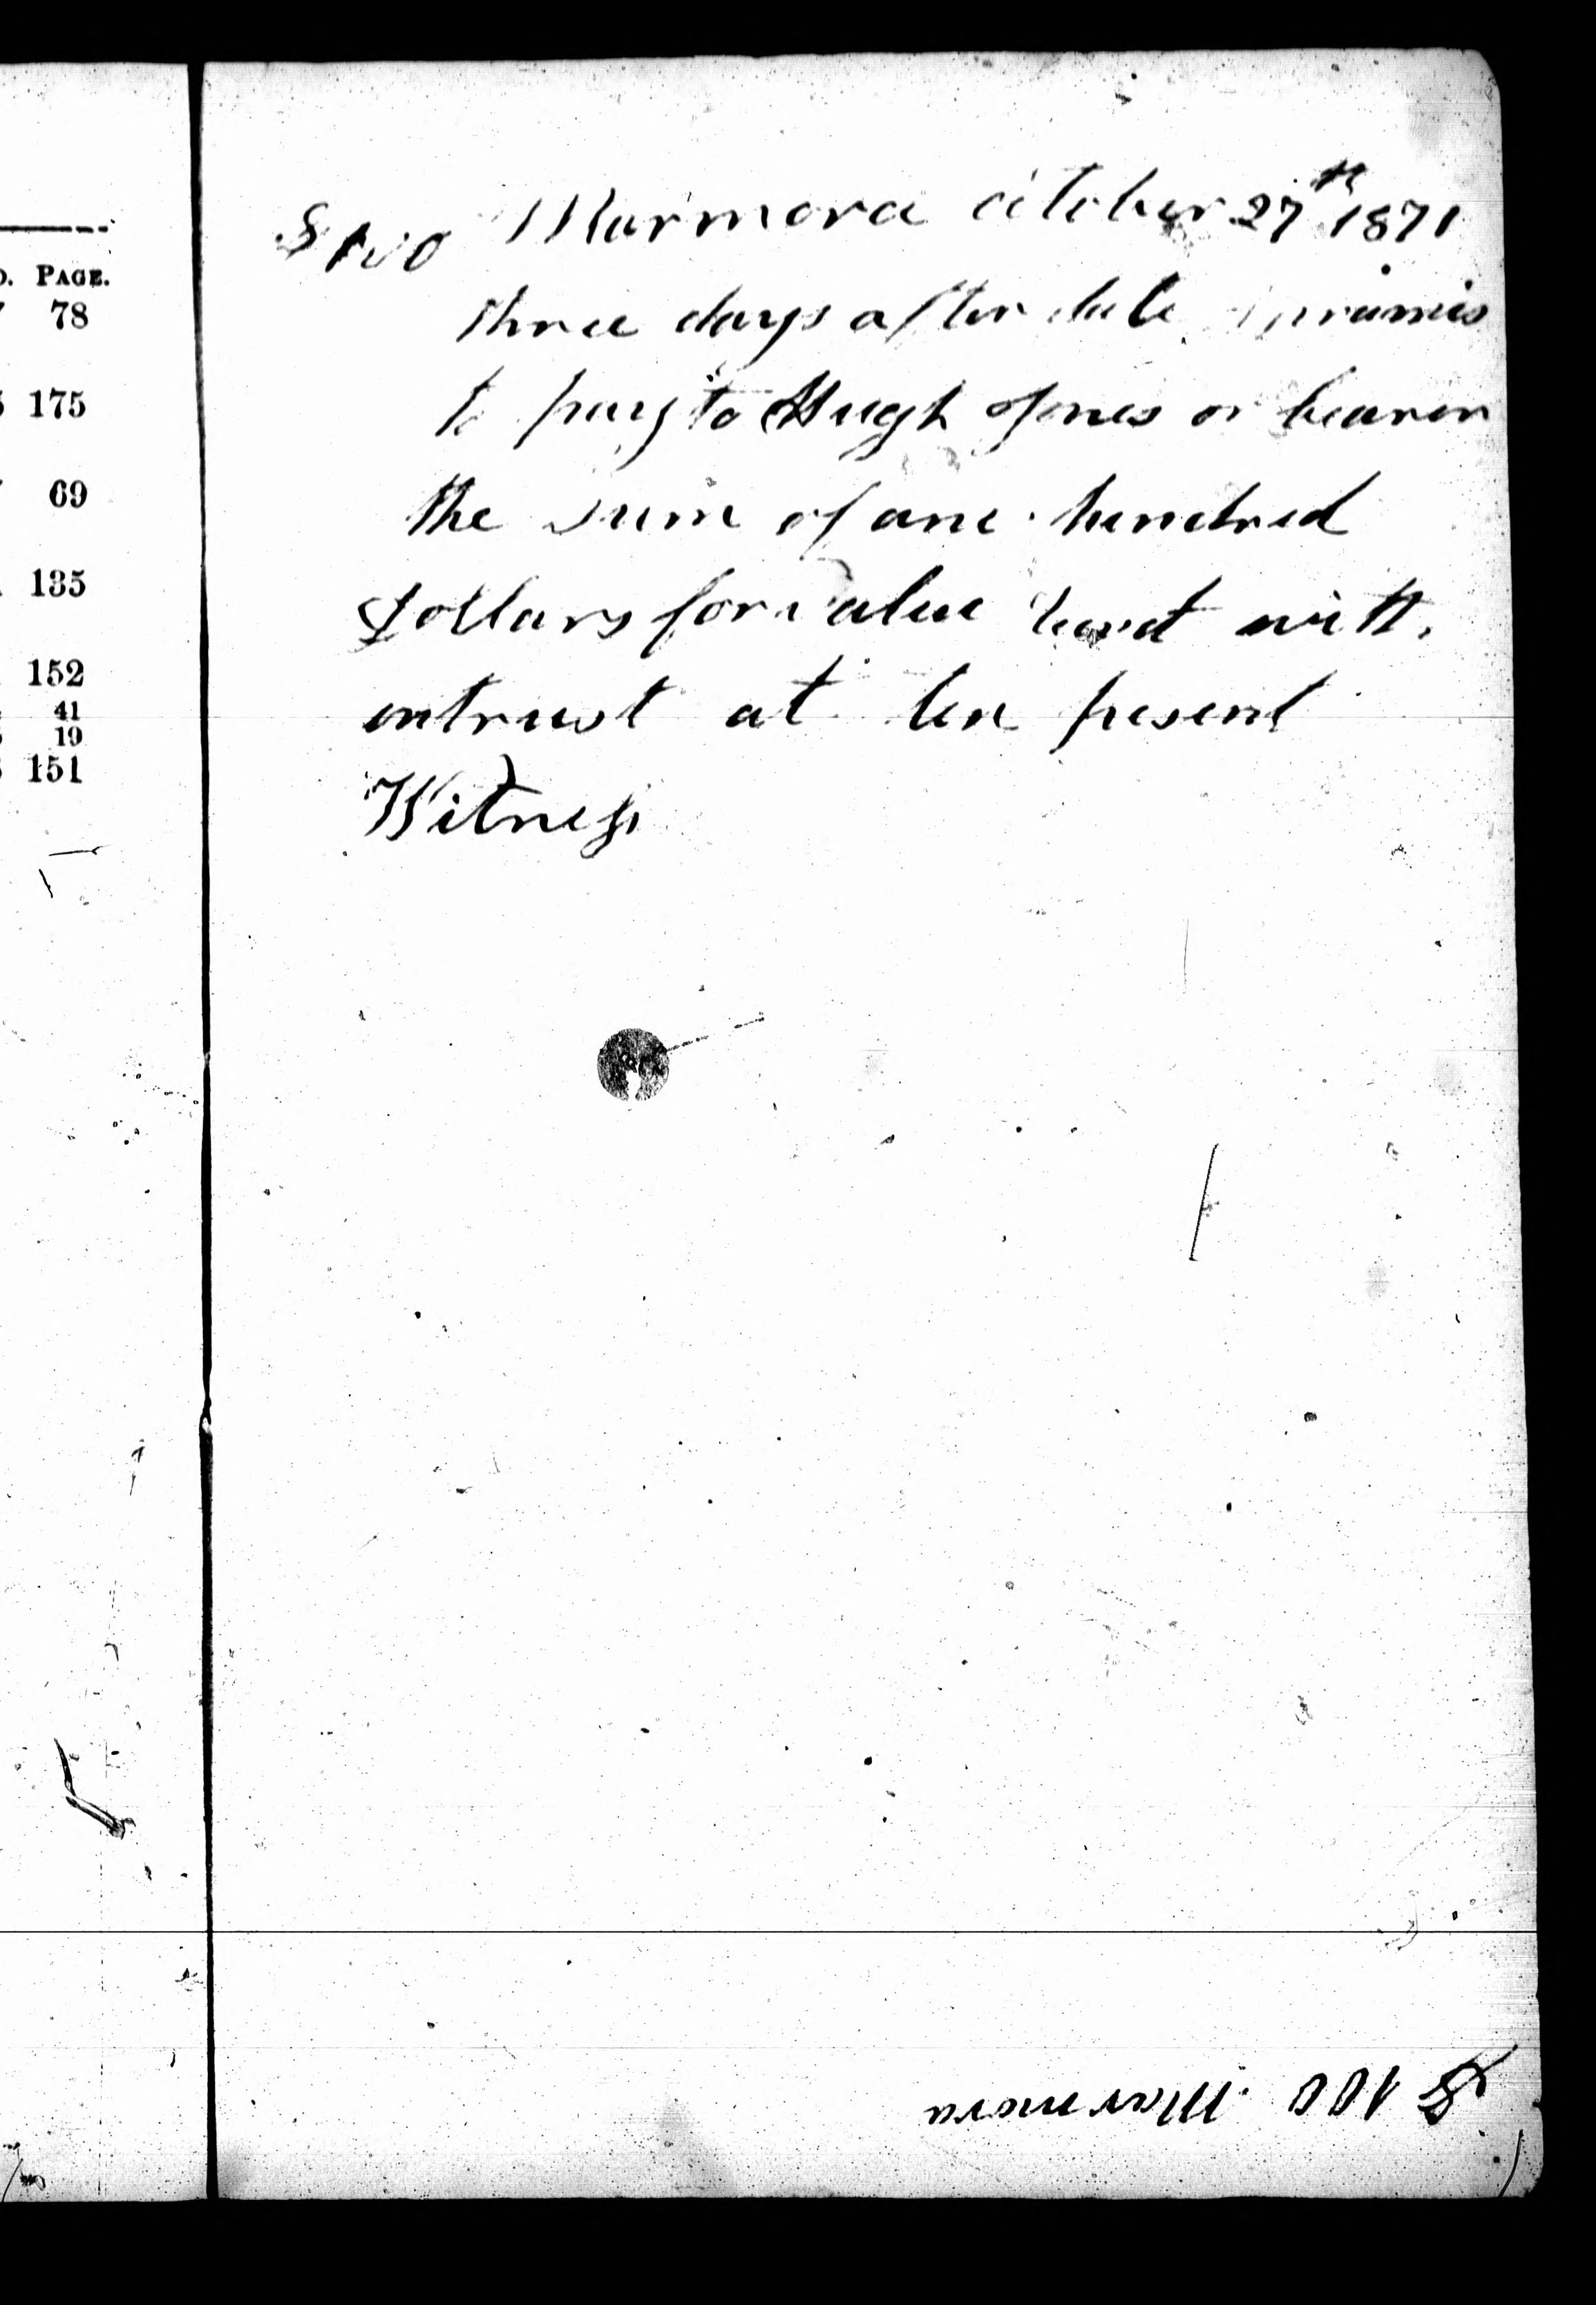 PAGE.
78
175
69
135
152
41
19
151
$100 Marmora October 27th 1871
three days after date I promis
to pay to Hugh Jones or bearer
the sum of one hundred
Dollars for value with
intrust at ten pesent
Witness
$100 Marmora